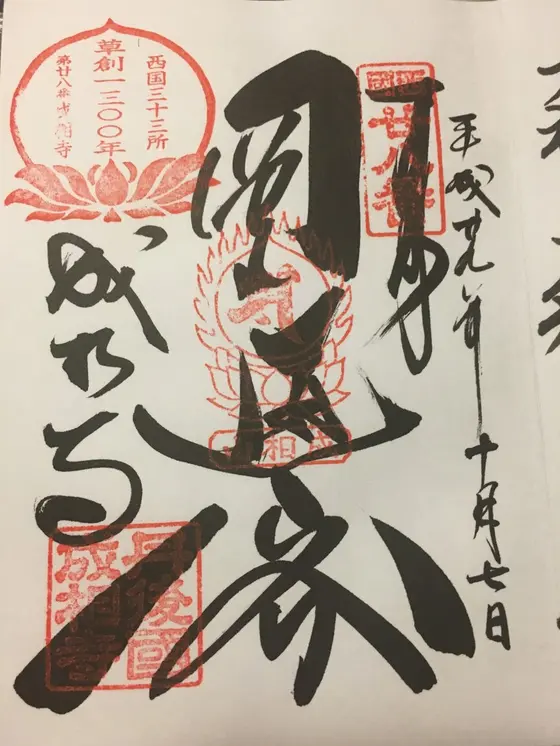 平成廿九年十月七日
奉拝
西國
廿八番
圓通
西国三十三所
草創一三〇〇年
第廿八番成相寺
成相寺
丹後國
成相寺